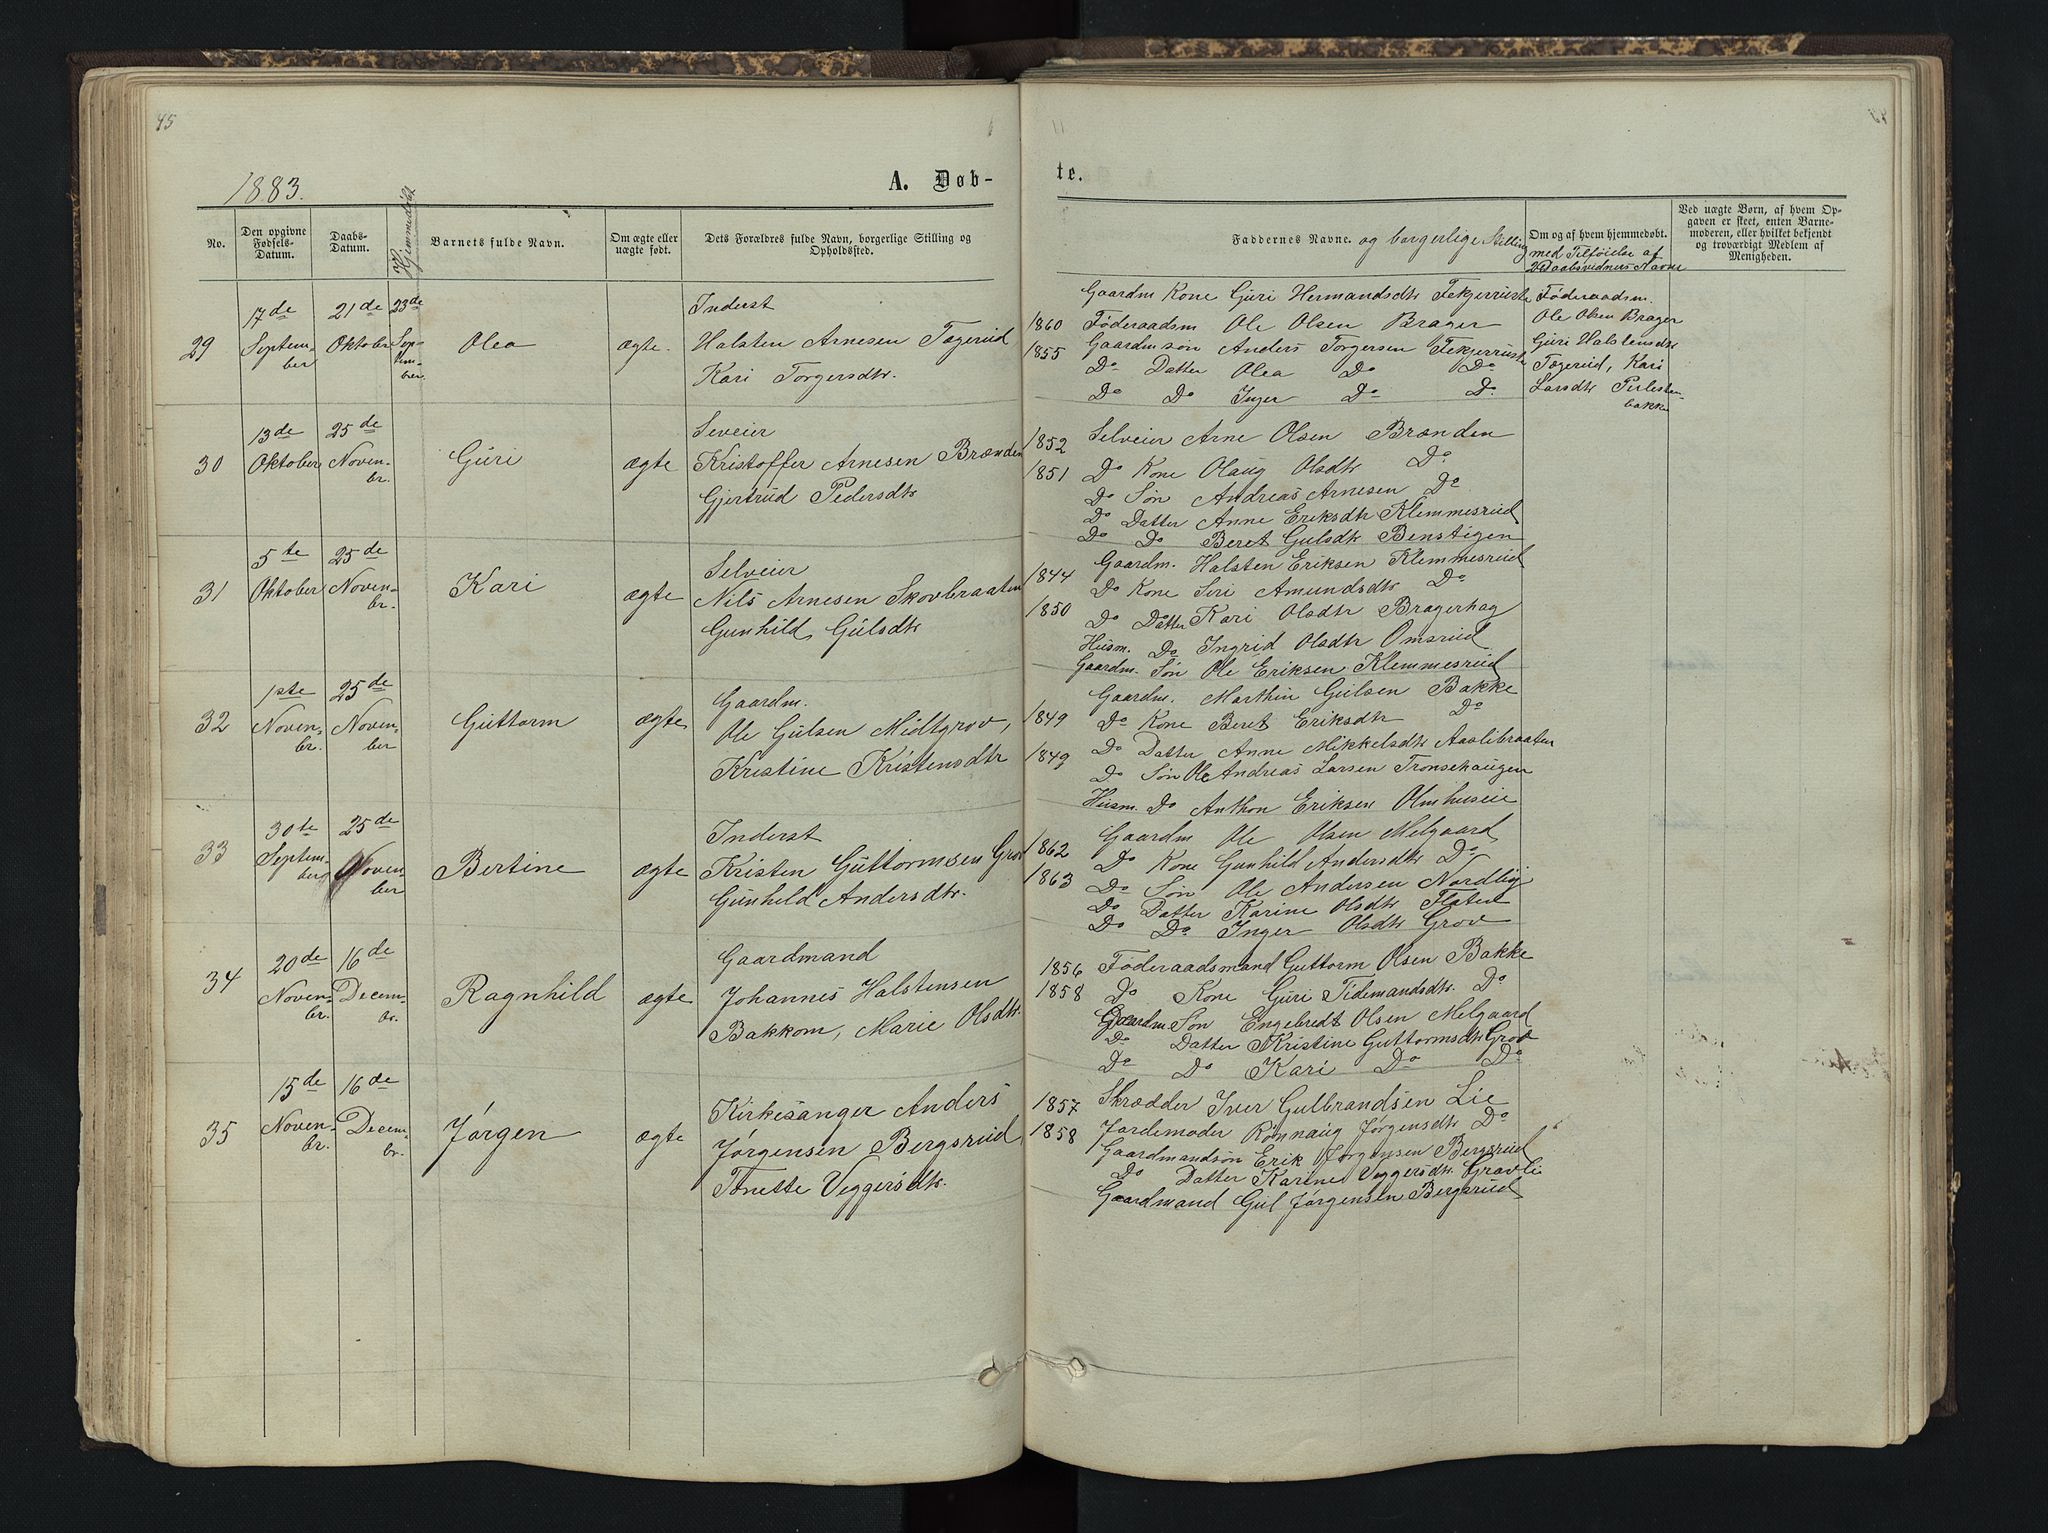 45
1883.
A. Døb-
te.
No.
Den opgivne Fødsels-Datum.
Daabs-Datum.
Hjemmedøbt
Barnets fulde Navn.
Om ægte eller uægte født.
Dets Forældres fulde Navn, borgerlige Stilling og Opholdssted.
Faddernes Navne. og borgerlige Stilling
Om og af hvem hjemmedøbt. med Tilføielse af 2 Daabsvidners Navne
Ved uægte Børn, af hvem Opgaven er skeet, enten Barnemoderen, eller hvilket bekjendt og troværdigt Medlem af Menigheden.
29
17de September
21de Oktober
23de September.
Olea
ægte.
Inderst
Halsten Arnesen Tøgerud
Kari Torgersdtr.
1860
1855
Gaardm Kone Guri Hermandsdtr Fekjerruste
Føderaadsm Ole Olsen Brager
Gaardmson Anders Torgersen Fekjerruste
Do Datter Olea Do Do
Do Do Inger Do Do
Føderaadsm.
Ole Olsen Brager
Guri Halstensdtr
Tøgerud, Kari
Larsdtr Perlesten-
bakke
30
13de Oktober
25de Novenbr.
Guri
ægte
Seveier
Kristoffer Arnesen Brænden
Gjertrud Pedersdtr
1852
1851
Selveier Arne Olsen Brænden
Do Kone Olaug Olsdtr Do
Do Søn Andreas Arnesen Do
Do Datter Anne Eriksdtr Klemmesrud
Do Do Beret Gulsdtr Benstigen
31
5te Oktober
25de Novenbr.
Kari
ægte
Selveier
Nils Arnesen Skovbraaten
Gunhild Gulsdtr
1844
1850
Gaardm. Halsten Eriksen Klemmesrud
Do Kone Siri Amundsdtr Do
Do Datter Kari Olsdtr Bragerhag
Husm. Do Ingrid Olsdtr Omsrud
Gaardm. Søn Ole Eriksen Klemmesrud
32
1ste Novenbr.
25de November
Guttorm
ægte
Gaardm.
Ole Gulsen Midtgrov,
Kristine Kristensdtr
1849
1849
Gaardm. Marthin Gulsen Bakke
Do Kone Beret Eriksdtr Do
Do Datter Anne Mikkelsdtr Aaslibraaten
Do Søn Ole Andreas Larsen Tronsehaugen
Husm. Do Anthon Eriksen Olmhuseie
33
30te September
25de November
Bertine
ægte
Inderst
Kristen Guttormsen Grov
Gunhild Andersdtr.
1862
1863
Gaardm Ole Olsen Melgaard
Do Kone Gunhild Andersdtr Do
Do Søn Ole Andersen Nordlie
Do Datter Karine Olsdtr Flaten
Do Do Inger Olsdtr Grov
34
20de Novenbr.
16de Decembr.
Ragnhild
ægte
Gaardmand
Johannes Halstensen
Bakkom, Marie Olsdtr.
1856
1858
Føderaadsmand Guttorm Olsen Bakke
Do Kone Guri Tidemandsdtr. Do
Gaardm Søn Engebredt Olsen Melgaard
Do Datter Kristine Guttormsdtr Grov
Do Do Kari Do Do
35
15de Novenbr.
16de Decembr.
Jørgen
ægte
Kirkesanger Anders
Jørgensen Bergsrud
Tonette Veggersdtr.
1857
1858
Skrædder Iver Gulbrandsen Lie
Jordemoder Rønnaug Jørgensdtr Do
Gaardmandsøn Erik Jørgensen Bergsrud
Do Datter Karine Veggersdtr. Gravli
Gaardmand Gul Jørgensen Bergsrud